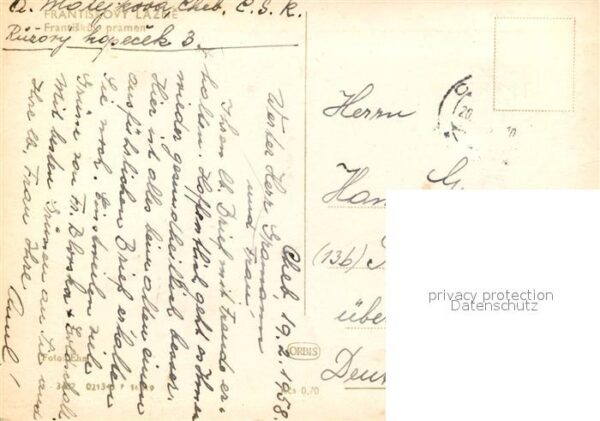 A. Matejkova, Cheb, Č.S.R.
FRANTIŠKOVY LÁZNĚ
Františkův pramen
Růžový kopeček 3.
Cheb, 19.2.1958.
Werter Herr Gramann
und Frau,
Ihren lb. Brief mit Freude er-
halten. Hoffentlich geht es Ihnen
wieder gesundheitlich besser.
Hier ist alles beim alten einen
ausführlichen Brief erhalten
Sie noch. Einstweilen nur
Grüsse von Fr.
Mit besten Grüssen an Sie und
Ihre lb. Frau Ihre
Herrn
(13b)
über
ORBIS
Kčs 0,70
Foto
privacy protection
Datenschutz